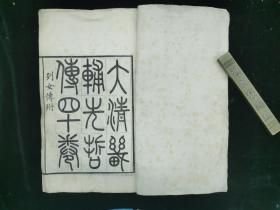 大清畿
輔先哲
傳四十卷
列女傳附